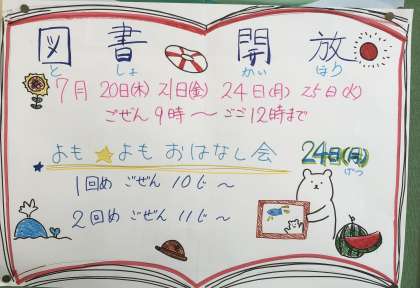 図書開放
としょかいほう
7月 20日(木) 21日(金) 24日(月) 25日(火)
ごぜん 9時〜ごご12時まで
よも★よも おはなし会 24日(月)
げつ
1回め ごぜん 10じ〜
2回め ごぜん 11じ〜